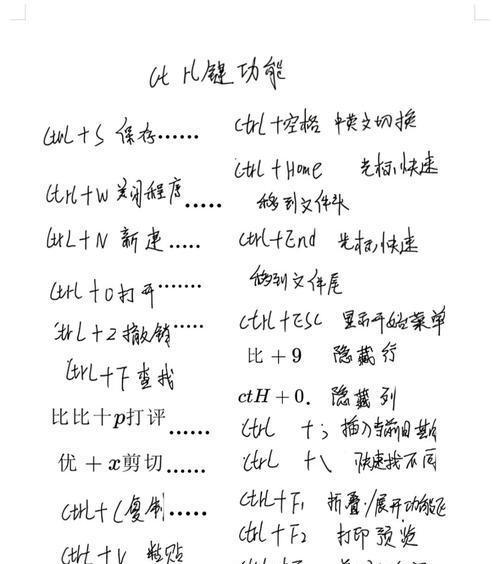 Ctrl键功能
Ctrl+S 保存……
Ctrl+W 关闭程序……
Ctrl+N 新建……
Ctrl+O打开……
Ctrl+Z撤销……
Ctrl+F查找
比比十p打评……
优 + x剪切……
Ctrl+C复制……
Ctrl+V 粘贴
Ctrl+空格 中英文切换
Ctrl+Home 光标快速
移到文件头
Ctrl+End 光标快速
移到文件尾
Ctrl+ESC 显示开始菜单
比+9 隐藏行
ctH+0. 隐藏列
Ctrl +; 插入当前日期
Ctrl +\ 快速找不同
Ctrl+F1 折叠/展开功能区
Ctrl+F2 打印预览